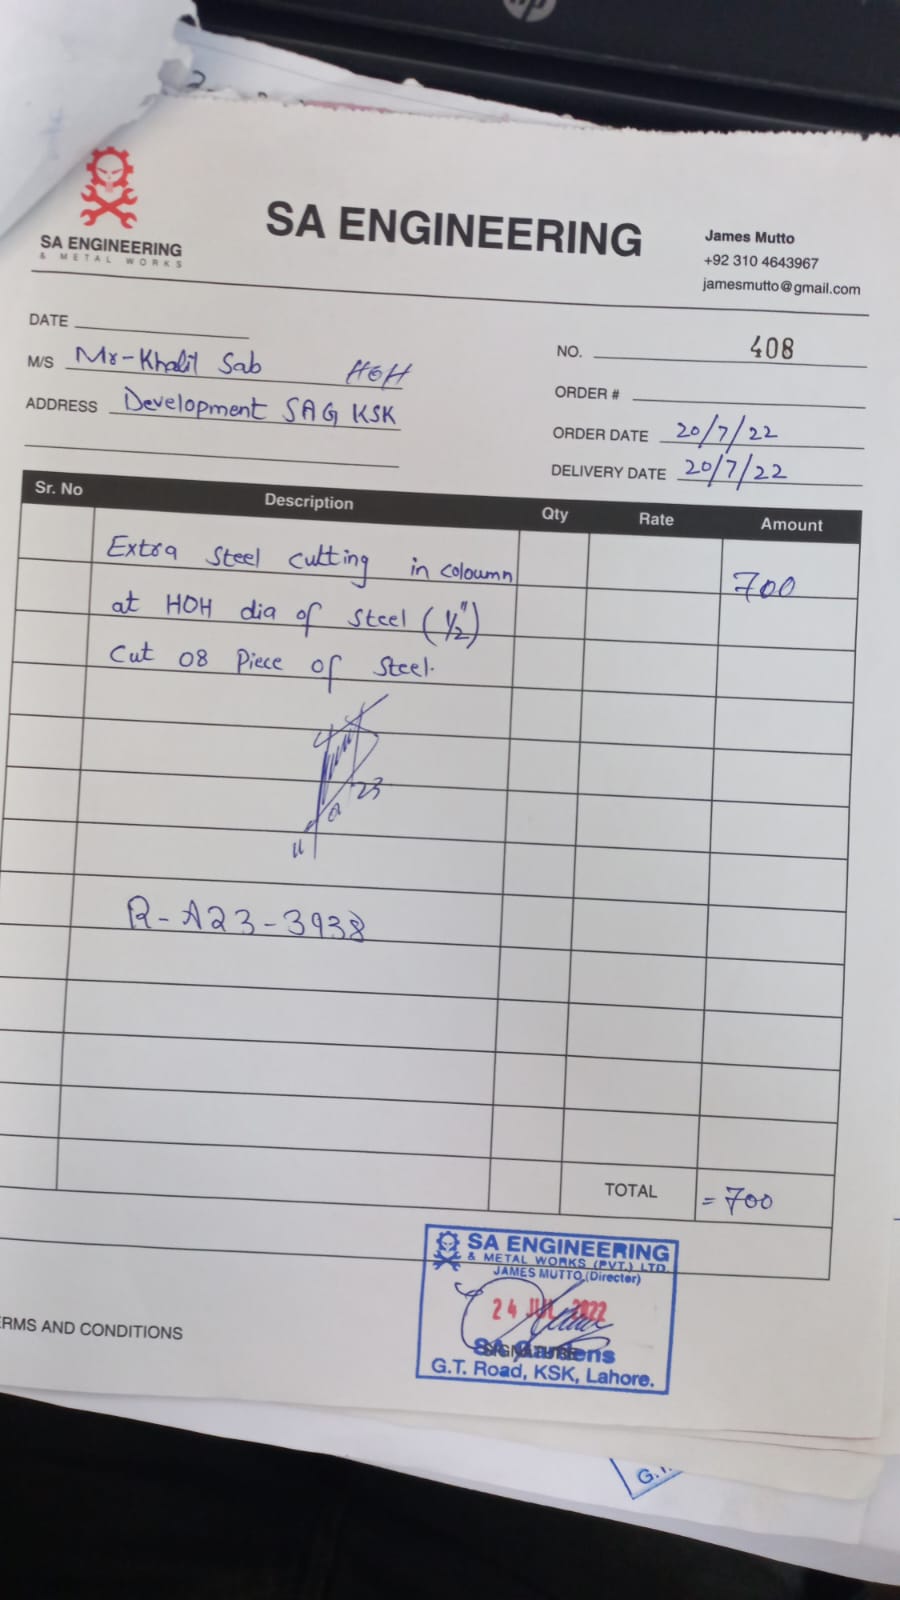 SA ENGINEERING
& METAL WORKS
SA ENGINEERING
James Mutto
+92 310 4643967
jamesmutto@gmail.com
DATE
NO. 408
M/S Mr-Khalil Sab HOH
ORDER #
ADDRESS Development SAG KSK
ORDER DATE 20/7/22
DELIVERY DATE 20/7/22
Sr. No Description Qty Rate Amount
Extra Steel cutting in coloumn 700
at HOH dia of steel (1/2")
Cut 08 Piece of Steel.
R-A23-3938
TOTAL = 700
SA ENGINEERING
& METAL WORKS (PVT.) LTD.
JAMES MUTTO (Director)
24 JUL 2022
SA Gardens
SIGNATURE
G.T. Road, KSK, Lahore.
ERMS AND CONDITIONS